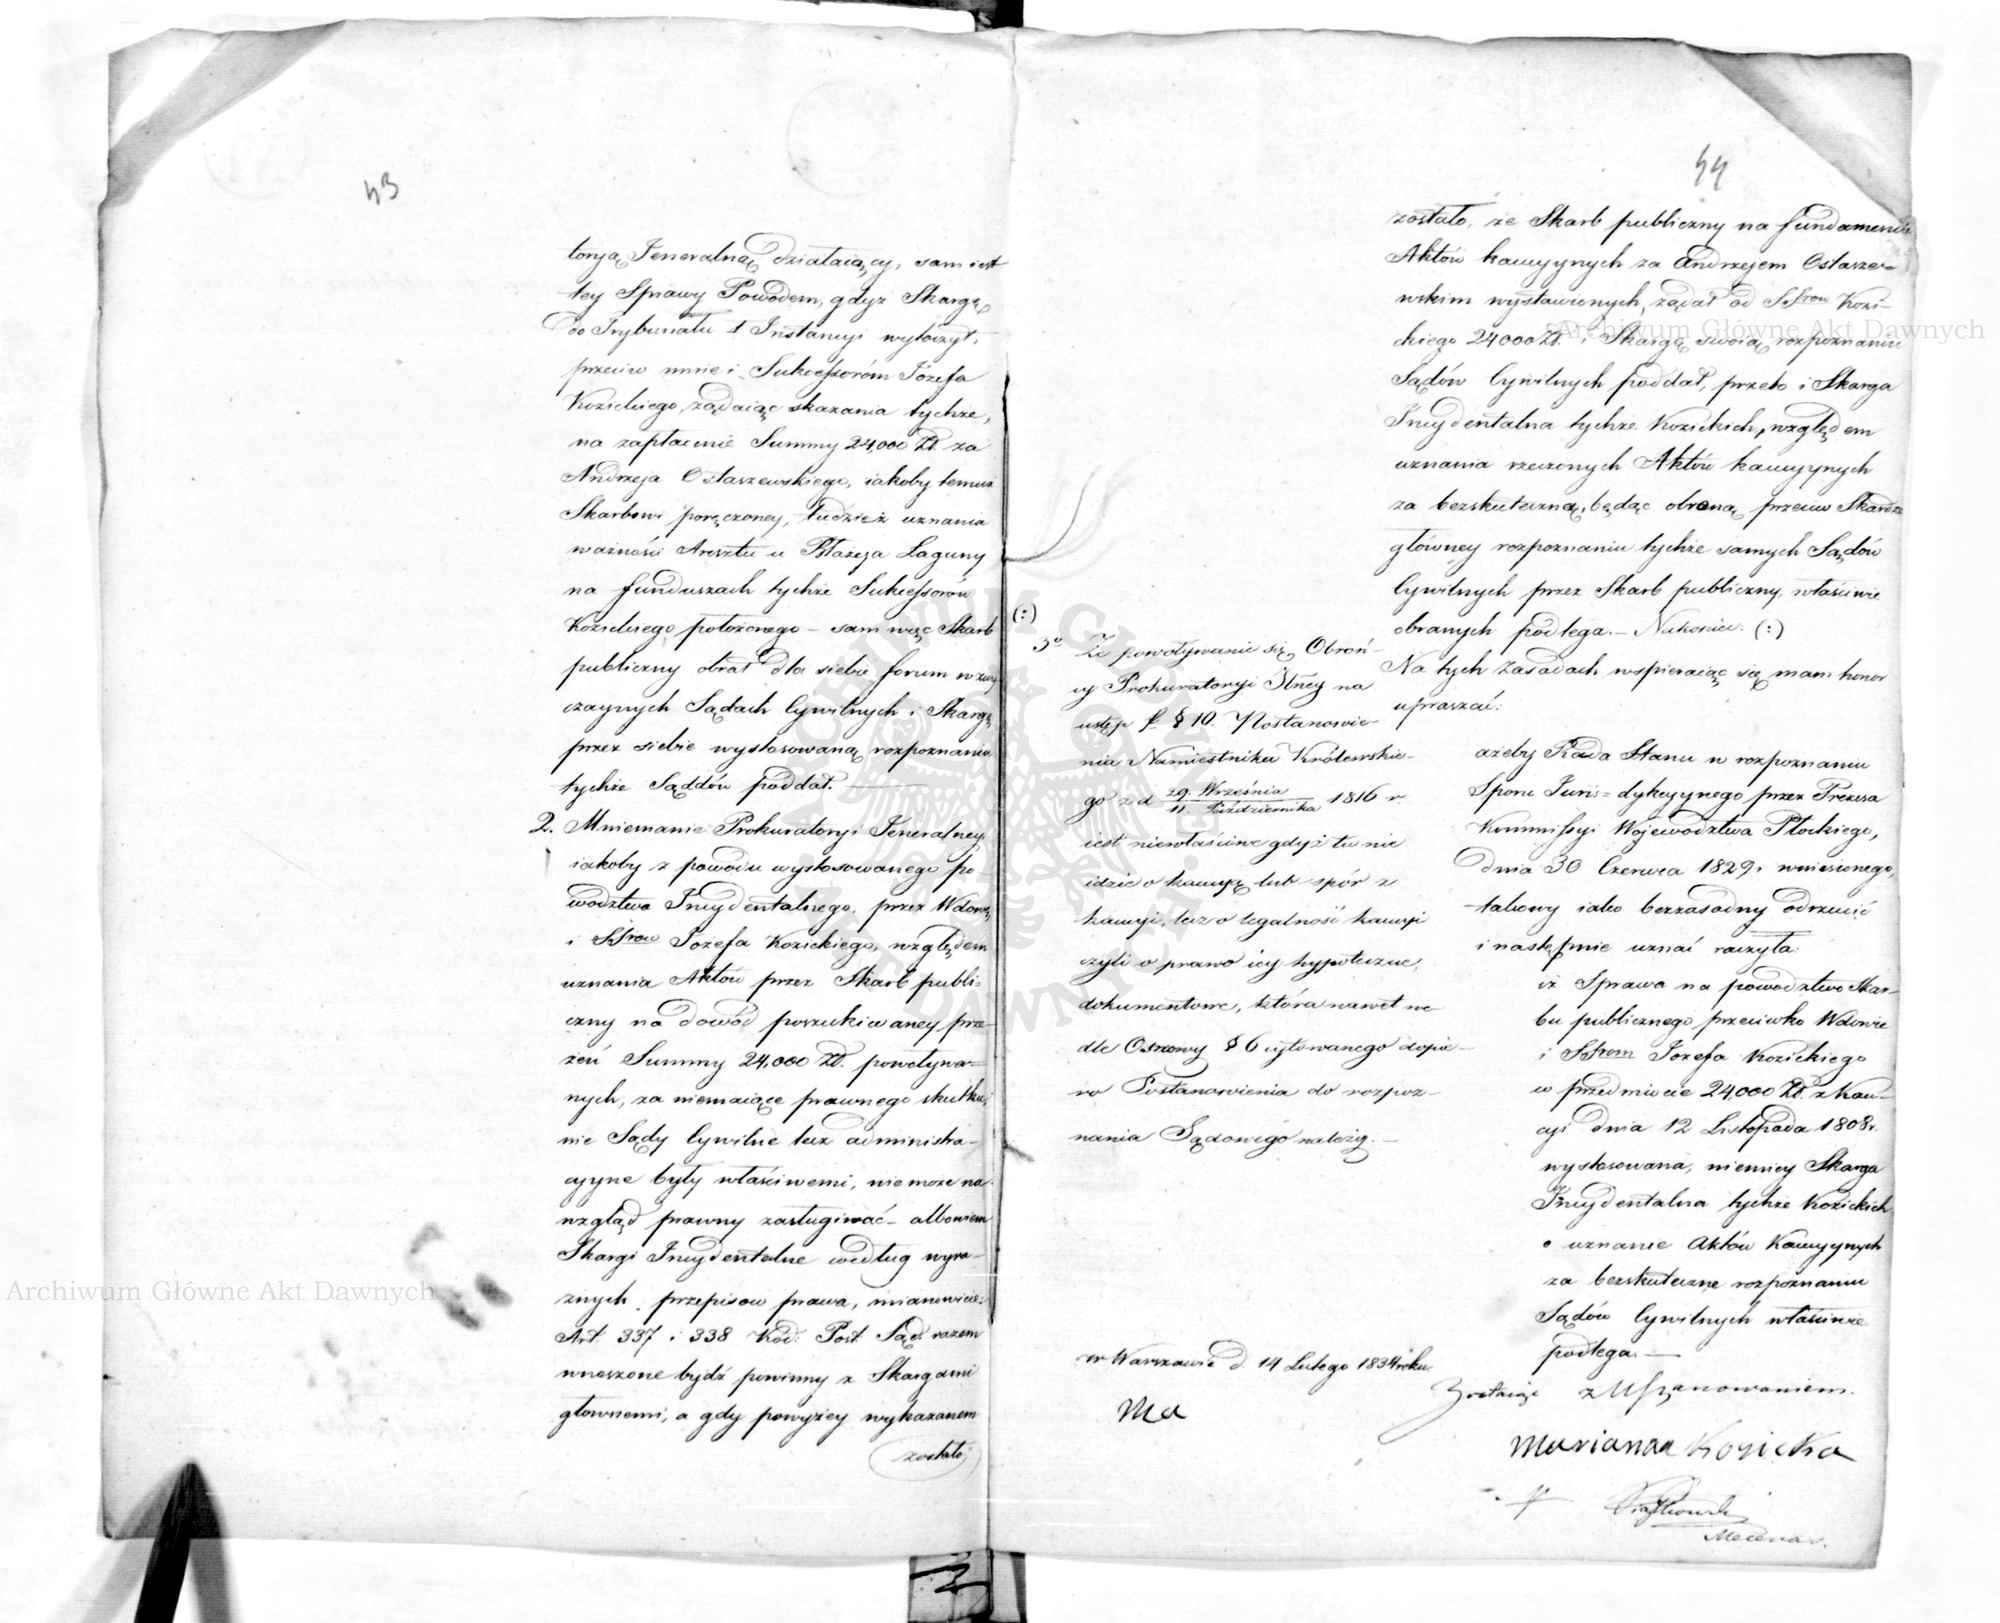 43
toryą Jeneralną działaiący, sam iest
tey Sprawy Powodem, gdyż Skargę
do Trybunału 1 Instancyi wytoczył,
przeciw mnie i Sukcessorom Józefa
Kozickiego, żądaiąc skazania tychże,
na zapłacenie Summy 24,000 Zł. za
Andrzeja Ostaszewskiego, iakoby temuż
Skarbowi poręczoney, tudzież uznania
ważności Aresztu u Błażeja Laguny
na funduszach tychże Sukcessorów
Kozickiego położonego – sam więc Skarb
publiczny obrał dla siebie forum w zwy
czaynych Sądach Cywilnych i Skargę
przez siebie wystosowaną rozpoznaniu
tychże Sąddów poddał. —
2. Mniemanie Prokuratoryi Jeneralney,
iakoby z powodu wystosowanego po-
wodztwa Incydentalnego, przez Wdowę
i SSrow Józefa Kozickiego, względem
uznania Aktów przez Skarb publi=
czny na dowód poszukiwaney prze-
zeń Summy 24,000 Zł. powoływa=
nych, za niemaiące prawnego skutku,
nie Sądy Cywilne lecz administra-
cyjne były właściwemi, nie może na
wzgląd prawny zasługiwać – albowiem
Skargi Incydentalne według wyra-
źnych przepisow prawa, mianowicie:
Art. 337 i 338 Kod: Post Sąd: razem
wnoszone bydź powinny z Skargami
głownemi, a gdy powyżey wykazanem
zostało
44
zostało, że Skarb publiczny na fundamencie
Aktów kaucyynych za Andrzejem Ostasze=
wskim wystawionych, żądał od SSrow Kozi-
ckiego 24000 Zł. i Skargę swoią rozpoznaniu
Sądów Cywilnych poddał, przeto i Skarga
Incydentalna tychże Kozickich, względem
uznania rzeczonych Aktów kaucyynych
za bezskuteczną, będąc obroną przeciw Skardze
główney rozpoznaniu tychże samych Sądów
Cywilnych przez Skarb publiczny, właściwie
obranych podlega. – Nakoniec. (:)
(:)
3o Że powoływanie się Obroń-
cy Prokuratoryi Jlney na
ustęp f § 10. Postanowie-
nia Namiestnika Królewskie-
go z d 29. Września / 11. Października 1816 r.
iest niewłaściwe gdyż tu nie
idzie o kaucyę lub spór z
kaucyi, lecz o legalność kaucyi
czyli o prawo iey hypoteczne,
dokumentowe, która nawet we
dle Osnowy § 6 cytowanego dopie-
ro Postanowienia do rozpoz-
nania Sądowego należy. –
Na tych zasadach wspieraiąc się mam honor
upraszać:
ażeby Rada Stanu w rozpoznaniu
Sporu Juris=dykcyynego przez Prezesa
Kommissyi Województwa Płockiego,
dnia 30 Czerwca 1829 r. wniesionego,
takowy iako bezzasadny odrzucić
i następnie uznać raczyła:
iż Sprawa na powodztwo Skar-
bu publicznego przeciwko Wdowie
i SSrom Jozefa Kozickiego
w przedmiocie 24,000 Zł. z Kau-
cyi dnia 12 Listopada 1808 r.
wystosowana, niemniey Skarga
Incydentalna tychże Kozickich
o uznanie Aktów Kaucyynych
za bezskuteczne rozpoznaniu
Sądów Cywilnych właściwie
podlega. —
w Warszawie d. 14 Lutego 1834 roku.
Zostaię z Uszanowaniem.
Marianna Kozicka
Mecenas.
Archiwum Główne Akt Dawnych
Archiwum Główne Akt Dawnych